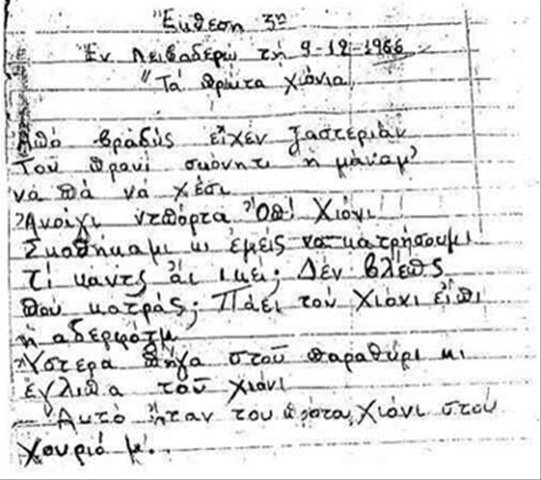 Ἔκθεση 3η
Ἐν Λειβαδερῷ τῇ 9-12-1966
"Τά πρῶτα χιόνια
Ἀπό βραδύς εἶχεν ξαστεριάν
Τού πρανί σκόνητι ἡ μάναμ'
νά πά νά χέσι
Ἀνοίγι ντπόρτα Ὀπ! Χιόνι
Σκοθήκαμι κι ἐμείς να κατρήσουμι
Τί κάντς ἀι ικεί; Δέν βλέπς
που κατράς; Πάει τού χιόνι εἶπι
ἡ αδερφότμ
Ὕστερα πῆγα στοῦ παραθύρι κι
ἔγλιπα τοῦ χιόνι
Αυτό ἦταν του πρότα χιόνι στού
χουριό μ'.